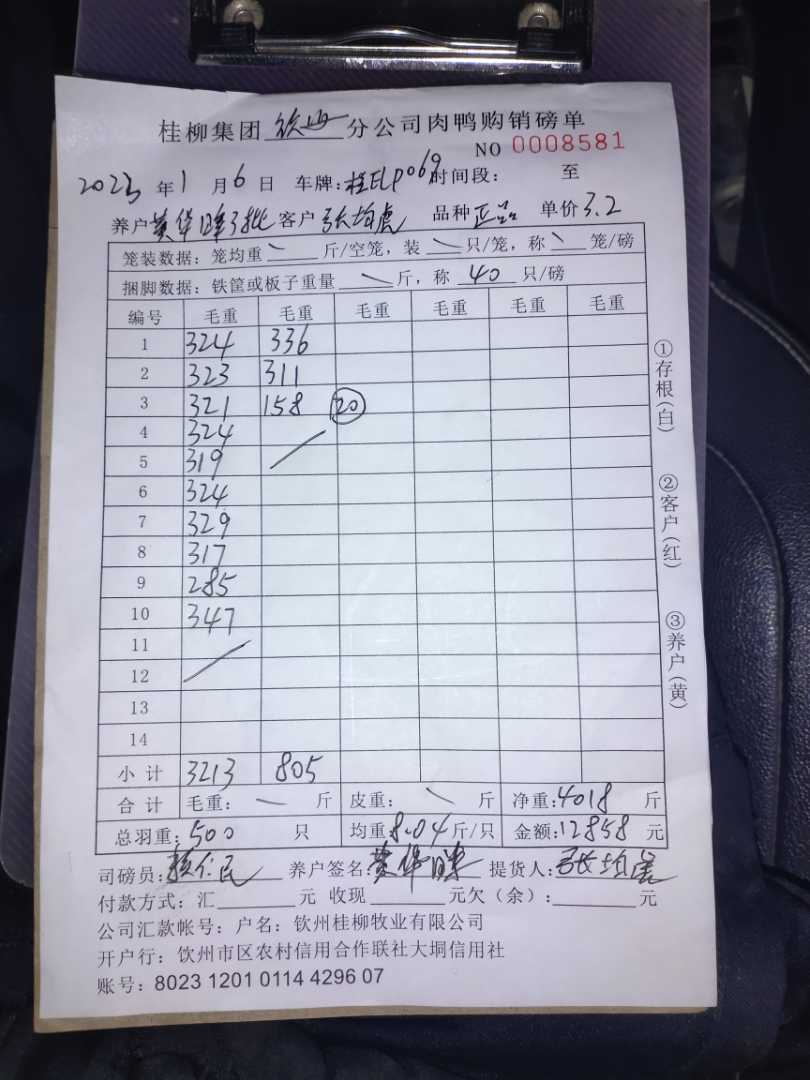 桂柳集团 钦州 分公司肉鸭购销磅单
NO 0008581
2023年1月6日 车牌:桂ELP069 时间段: 至
养户 黄华峰3批 客户 张均虎 品种 正品 单价 3.2
笼装数据:笼均重 \ 斤/空笼,装 \ 只/笼,称 \ 笼/磅
捆脚数据:铁筐或板子重量 \ 斤,称 40 只/磅
编号 毛重 毛重 毛重 毛重 毛重 毛重
1 324 336
2 323 311
3 321 158 20
4 324
5 319
6 324
7 329
8 317
9 285
10 347
11
12
13
14
小计 3213 805
合计 毛重: \ 斤 皮重: \ 斤 净重:4018 斤
总羽重:500 只 均重 8.04 斤/只 金额:12858 元
司磅员: 养户签名: 黄华 提货人: 张均
付款方式:汇 元 收现 元欠(余): 元
公司汇款帐号:户名:钦州桂柳牧业有限公司
开户行:钦州市区农村信用合作联社大垌信用社
账号:8023 1201 0114 4296 07
①存根(白)
②客户(红)
③养户(黄)